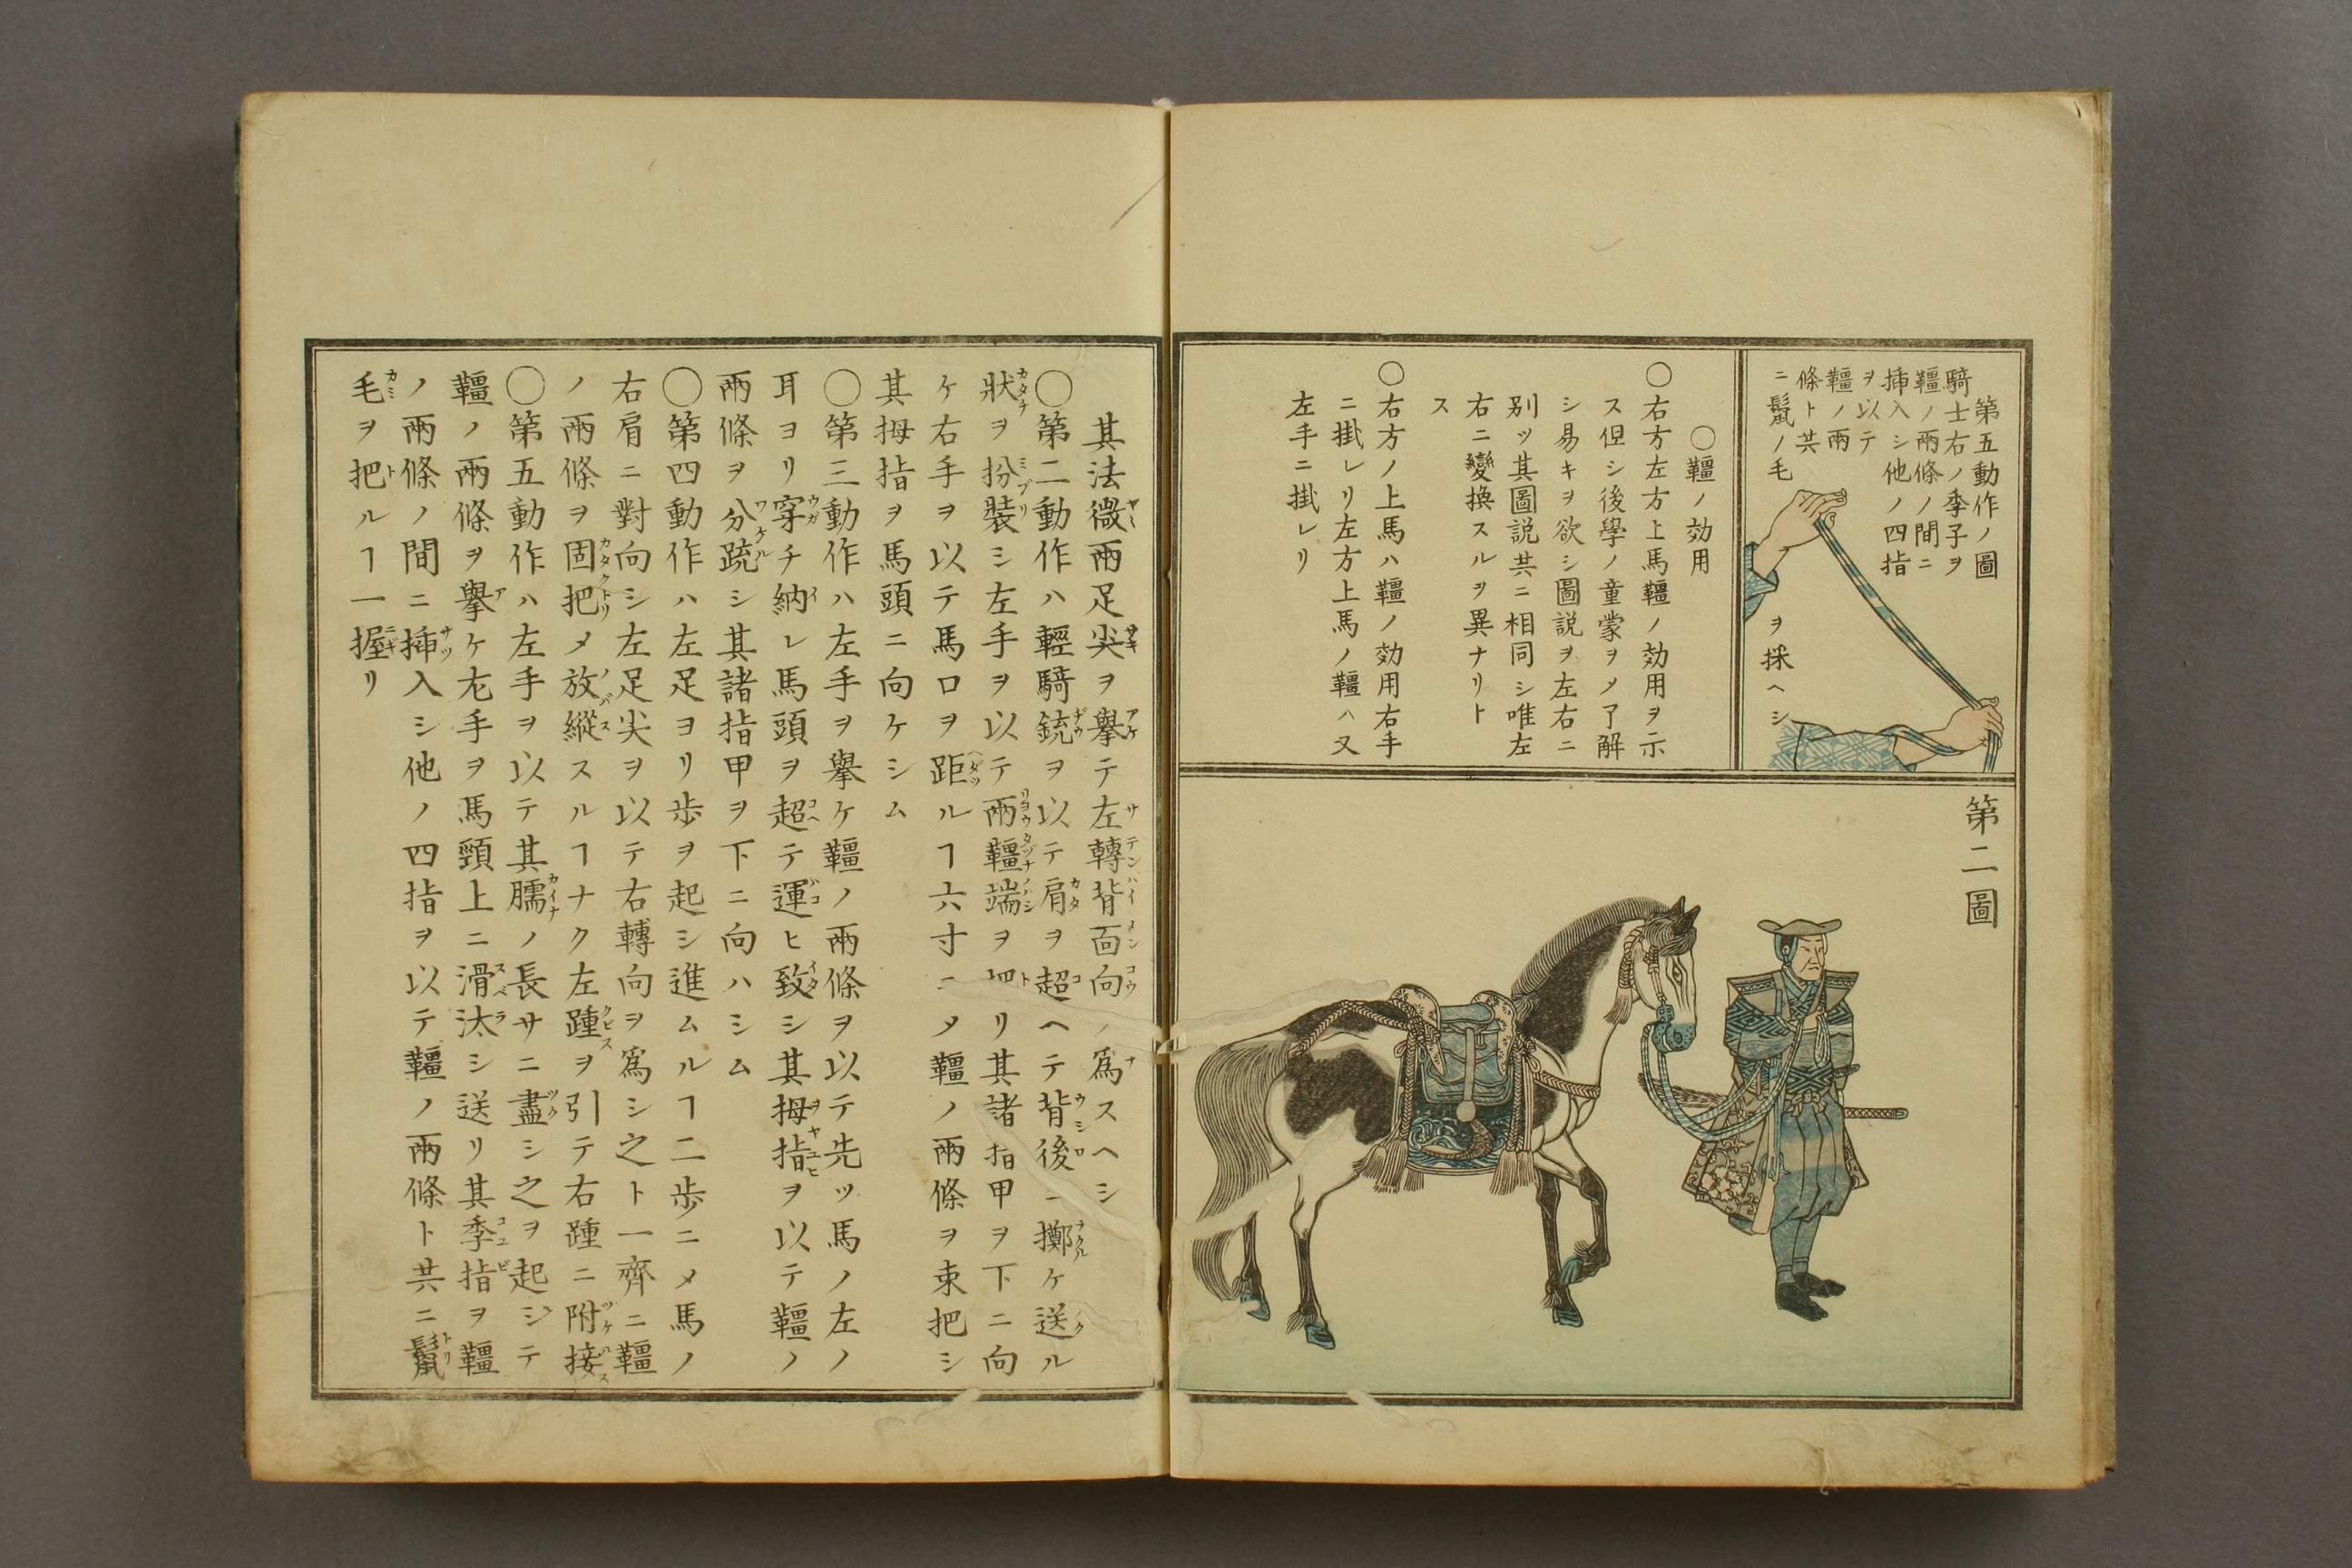 第五動作ノ圖
騎士右ノ季子ヲ
韁ノ兩條ノ間ニ
揷入シ他ノ四指
ヲ以テ
韁ノ兩
條ト共
ニ鬣ノ毛
ヲ採ヘシ
〇韁ノ効用
〇右方左方上馬韁ノ効用ヲ示
ス但シ後學ノ童蒙ヲメ了解
シ易キヲ欲シ圖説ヲ左右ニ
別ッ其圖説共ニ相同シ唯左
右ニ變換スルヲ異ナリト
ス
〇右方ノ上馬ハ韁ノ効用右手
ニ掛レリ左方上馬ノ韁ハ又
左手ニ掛レリ
第二圖
其法微兩足尖ヲ擧テ左轉背面向ノ爲スヘシ
〇第二動作ハ輕騎銃ヲ以テ肩ヲ超ヘテ背後擲ケ送ル
狀ヲ扮裝シ左手ヲ以テ兩韁端ヲリ其諸指甲ヲ下ニ向
ケ右手ヲ以テ馬口ヲ距ルヿ六寸ニメ韁ノ兩條ヲ束把シ
其拇指ヲ馬頭ニ向ケシム
〇第三動作ハ左手ヲ擧ケ韁ノ兩條ヲ以テ先ッ馬ノ左ノ
耳ヨリ穿チ納レ馬頭ヲ超テ運ヒ致シ其拇指ヲ以テ韁ノ
兩條ヲ分疏シ其諸指甲ヲ下ニ向ハシム
〇第四動作ハ左足ヨリ歩ヲ起シ進ムルヿ二歩ニメ馬ノ
右肩ニ對向シ左足尖ヲ以テ右轉向ヲ爲シ之ト一齊ニ韁
ノ兩條ヲ固把メ放縱スルヿナク左踵ヲ引テ右踵ニ附接ス
〇第五動作ハ左手ヲ以テ其臑ノ長サニ盡シ之ヲ起シテ
韁ノ兩條ヲ擧ケ右手ヲ馬頸上ニ滑汰シ送リ其季指ヲ韁
ノ兩條ノ間ニ揷入シ他ノ四指ヲ以テ韁ノ兩條ト共ニ鬣
毛ヲ把ルヿ一握リ